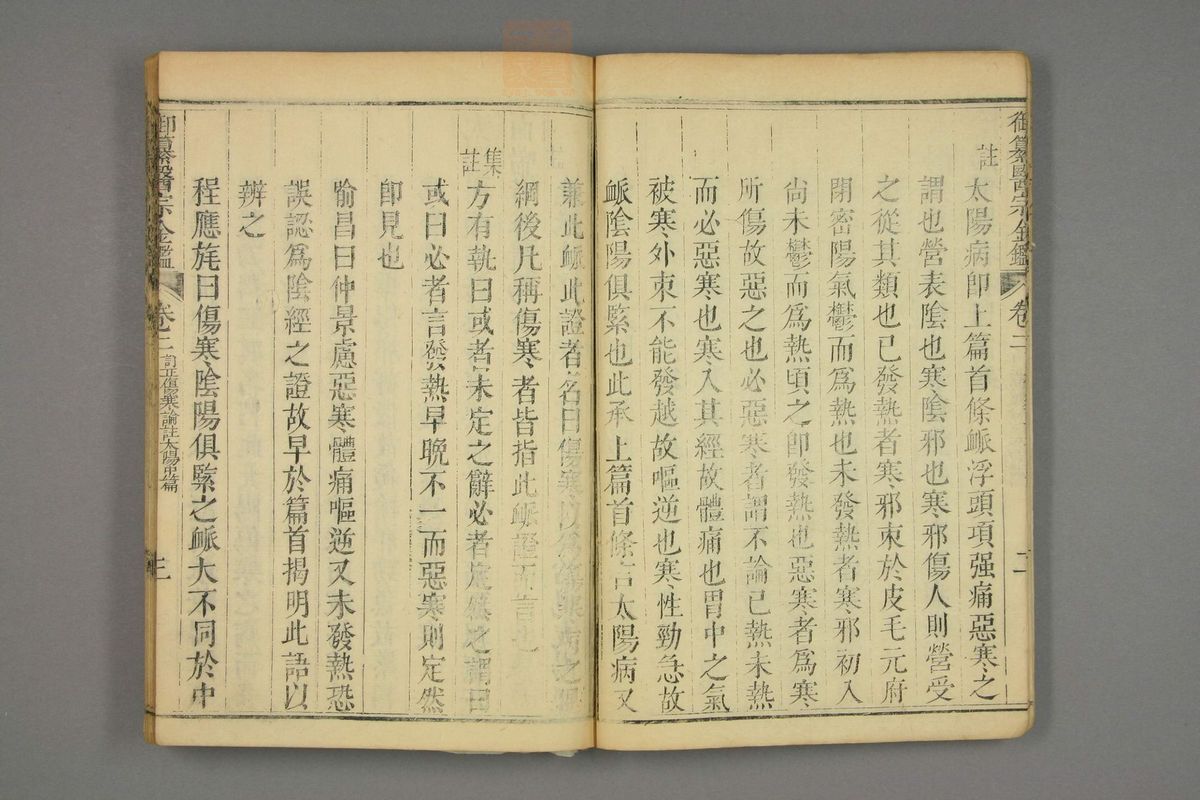 御纂醫宗金鑑 卷二 二
註 太陽病即上篇首條脈浮頭項强痛惡寒之
謂也營表陰也寒陰邪也寒邪傷人則營受
之從其類也已發熱者寒邪束於皮毛元府
閉密陽氣鬱而爲熱也未發熱者寒邪初入
尚未鬱而爲熱頃之即發熱也惡寒者爲寒
所傷故惡之也必惡寒者謂不論已熱未熱
而必惡寒也寒入其經故體痛也胃中之氣
被寒外束不能發越故嘔逆也寒性勁急故
脈陰陽俱緊也此承上篇首條言太陽病又
兼此脈此證者名曰傷寒以爲傷寒病之
綱後凡稱傷寒者皆指此脈證而言也
集註 方有執曰或者未定之辭必者定然之謂曰
或曰必者言發熱早晩不一而惡寒則定然
即見也
喻昌曰仲景慮惡寒體痛嘔逆又未發熱恐
誤認爲陰經之證故早於篇首揭明此語以
辨之
程應旄曰傷寒陰陽俱緊之脈大不同於中
御纂醫宗金鑑 卷二 訂正傷寒論註太陽中篇